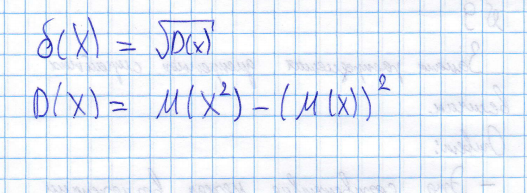 δ(X) = √D(x)
D(X) = M(X²) – (M(X))²